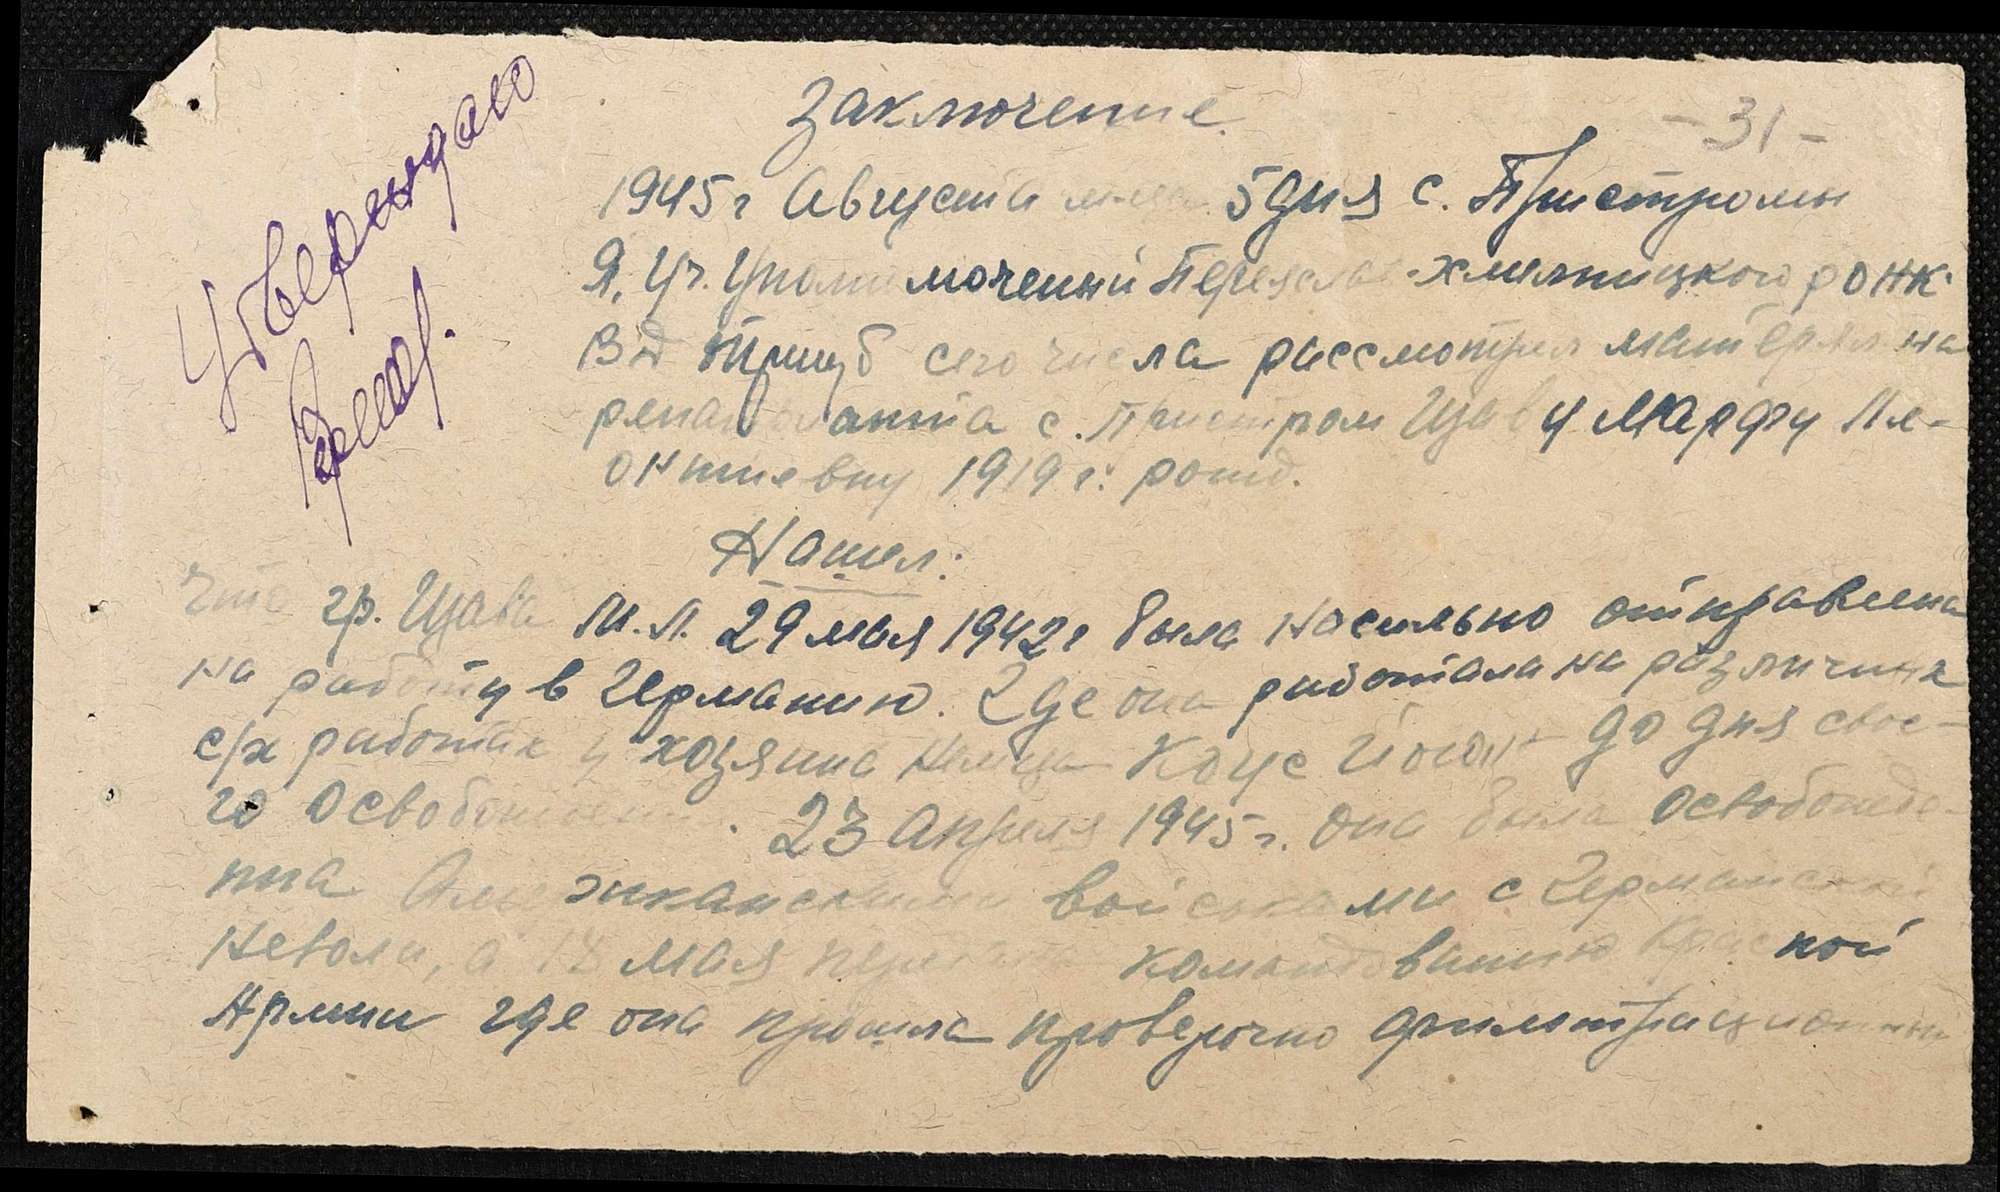 Утверждаю
Заключение.
-31-
1945 г Августа м-ца 5 дня с. Пристромы
Я, Уч. Уполномоченный Переяслав-хмельницкого рО НК-
ВД Трцуб сего числа рассмотрел материял на
репатрианта с. Пристром Щаву Марфу Ле-
онтиевну 1919 г. рожд.
Нашел:
Что гр. Щава М.Л. 29 мая 1942 г была насильно отправлена
на работу в Германию. Где она работала на различных
с/х работах у хозяина немца Коус Йоган до дня свое-
го освобождения. 23 апреля 1945 г. она была освобожде-
нна Американскими войсками с Германской
неволи, а 13 мая передана командованию Красной
Армии где она прошла проверочно фильтрационный